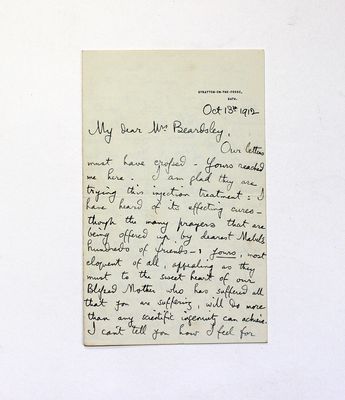 STRATTON-ON-THE-FOSSE,
BATH.
Oct 13th 1912
My dear Mrs Beardsley,
Our letters
must have crossed - Yours reached
me here. I am glad they are
trying this injection treatment: I
have heard of its effecting cures -
though the many prayers that are
being offered up by dearest Mabel's
hundreds of friends -: yours, most
eloquent of all, appealing as they
must to the sweet heart of our
Blessed Mother who has suffered all
that you are suffering, will do more
than any scientific ingenuity can achieve.
I can't tell you how I feel for